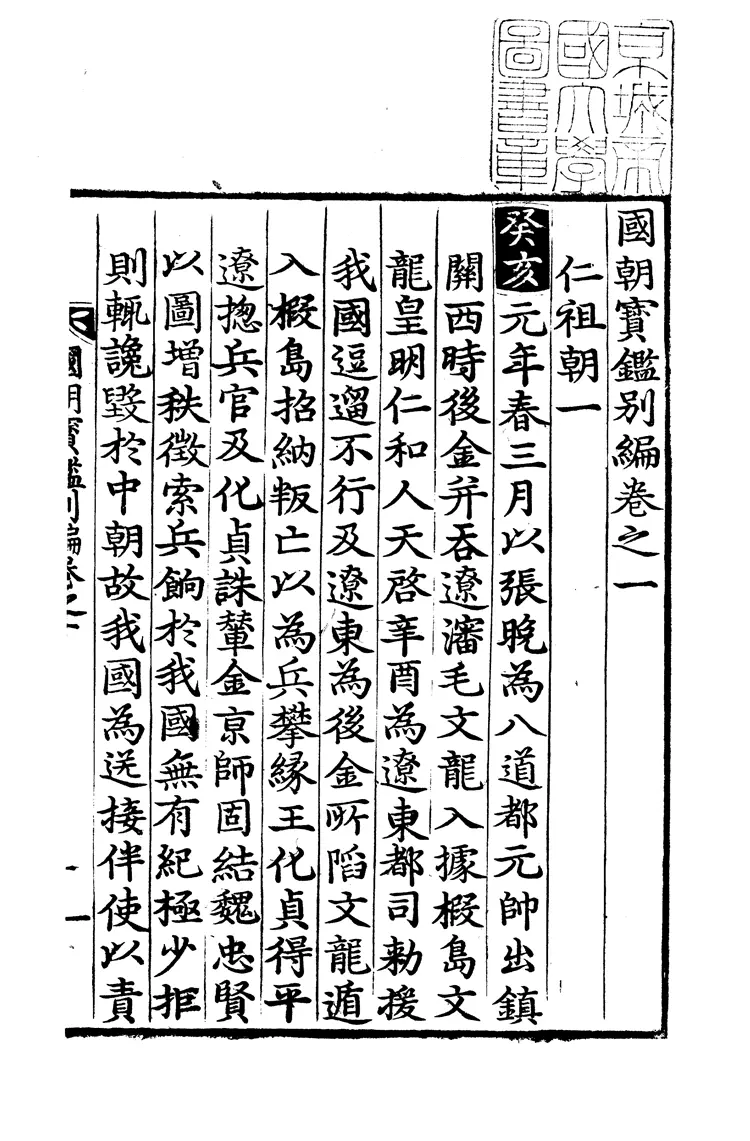 京城帝
國大學
圖書章
國朝寶鑑别編卷之一
仁祖朝一
癸亥元年春三月以張晚為八道都元帥出鎮
關西時後金并吞遼瀋毛文龍入據椵島文
龍皇明仁和人天啓辛酉為遼東都司勑援
我國逗遛不行及遼東為後金所䧟文龍遁
入椵島招納叛亡以為兵攀縁王化貞得平
遼揔兵官及化貞誅輦金京師固結魏忠賢
以圖增秩徵索兵餉於我國無有紀極少拒
則輒讒毀於中朝故我國為送接伴使以責
國朝寶鑑别編卷之一
一